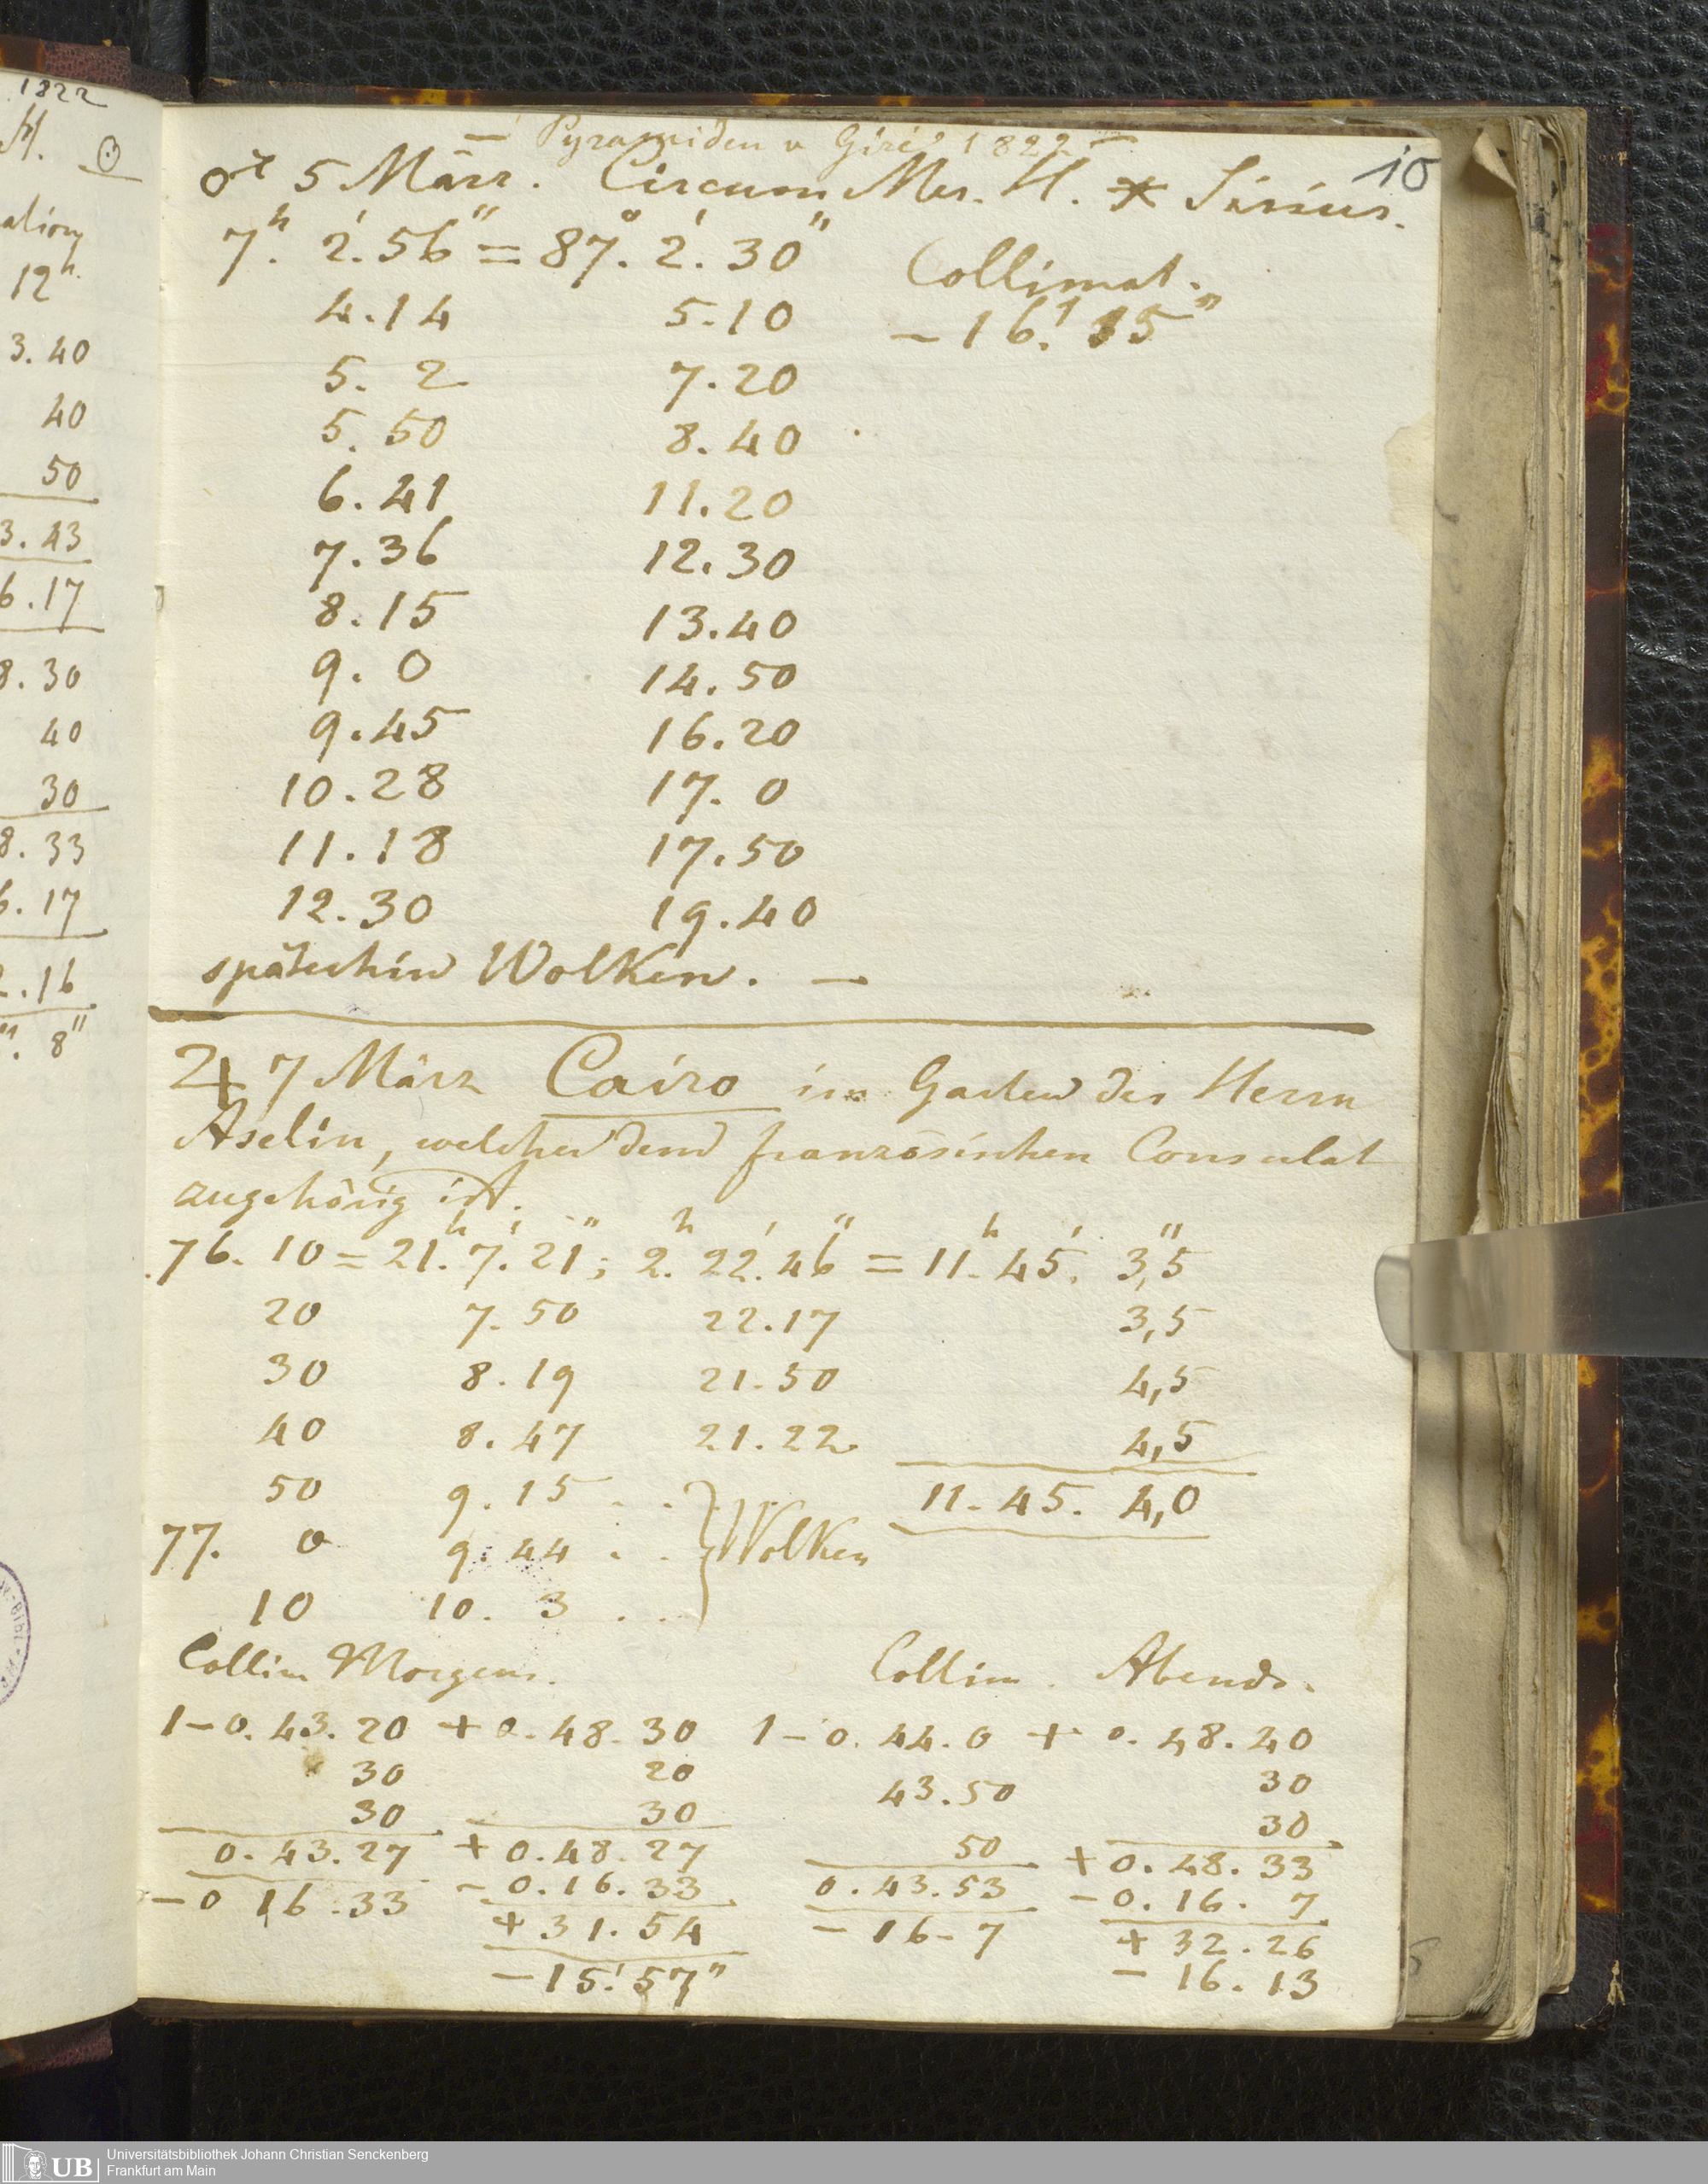 1822
H. ☉
12h.
3.40
40
50
3.43
6.17
8.30
40
30
8.33
6.17
2.16
8"
— Pyramiden v Gize 1822 —
10
♂ 5 März. Circum Mer. H. * Sirius.
7h. 2'. 56" = 87°. 2'. 30" Collimat.
4.14 5.10 — 16.' 15"
5. 2 7.20
5. 50 8.40
6.41 11.20
7.36 12.30
8.15 13.40
9. 0 14.50
9.45 16.20
10.28 17. 0
11.18 17.50
12.30 19.40
späterhin Wolken. —
♃ 7 März Cairo im Garten des Herrn
Aselin, welcher dem französischen Consulat
zugehörig ist.
76. 10 = 21h. 7'. 21"; 2h. 22'. 46" = 11h. 45'. 3",5
20 7. 50 22.17 3,5
30 8. 19 21.50 4,5
40 8. 47 21.22. 4,5
50 9. 15 . . } 11. 45. 4,0
77. 0 9. 44 . . } Wolken
10 10. 3 . . }
Collim Morgens. Collim. Abends.
1 – 0. 43. 20 + 0. 48. 30 1 – 0. 44. 0 + 0. 48. 40
30 20 43. 50 30
30 30 50 30
0. 43. 27 + 0. 48. 27 0. 43. 53 + 0. 48. 33
– 0 16. 33 – 0. 16. 33 – 16 – 7 – 0. 16. 7
+ 31. 54 + 32. 26
– 15.' 57" – 16. 13
UB Universitätsbibliothek Johann Christian Senckenberg
Frankfurt am Main